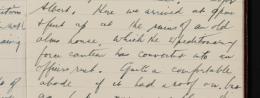 Albert. Here we arrived at 9pm
& put up at the ruins of an old
alms house, which the Expeditionary
force canteen has converted into an
officers rest. Quite a comfortable
abode if it had a roof on, but